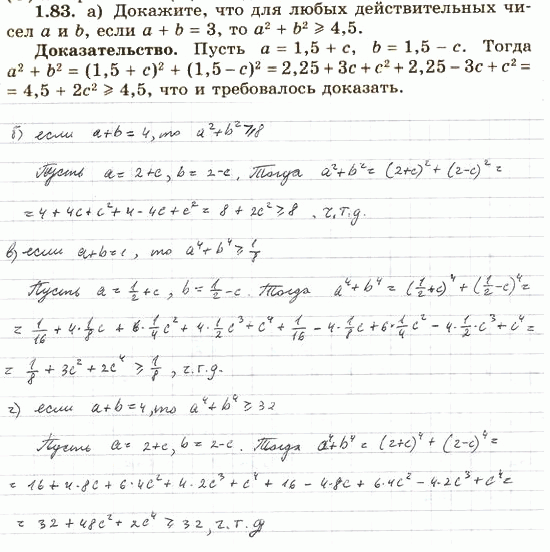 1.83. а) Докажите, что для любых действительных чи-
сел a и b, если a + b = 3, то a² + b² ⩾ 4,5.
Доказательство. Пусть a = 1,5 + c, b = 1,5 − c. Тогда
a² + b² = (1,5 + c)² + (1,5 − c)² = 2,25 + 3c + c² + 2,25 − 3c + c² =
= 4,5 + 2c² ⩾ 4,5, что и требовалось доказать.
б) если a+b=4, то a²+b²⩾8
Пусть a = 2+c, b = 2-c. Тогда a²+b² = (2+c)² + (2-c)² =
= 4+4c+c²+4-4c+c² = 8+2c² ⩾ 8, ч.т.д.
в) если a+b=1, то a⁴+b⁴ ⩾ 1/8
Пусть a = 1/2+c, b = 1/2-c. Тогда a⁴+b⁴ = (1/2+c)⁴ + (1/2-c)⁴ =
= 1/16 + 4·1/8c + 6·1/4c² + 4·1/2c³ + c⁴ + 1/16 - 4·1/8c + 6·1/4c² - 4·1/2·c³ + c⁴ =
= 1/8 + 3c² + 2c⁴ ⩾ 1/8, ч.т.д.
г) если a+b=4, то a⁴+b⁴ ⩾ 32
Пусть a = 2+c, b = 2-c. Тогда a⁴+b⁴ = (2+c)⁴ + (2-c)⁴ =
= 16+4·8c+6·4c²+4·2c³+c⁴+16-4·8c+6·4c²-4·2c³+c⁴ =
= 32+48c²+2c⁴ ⩾ 32, ч.т.д